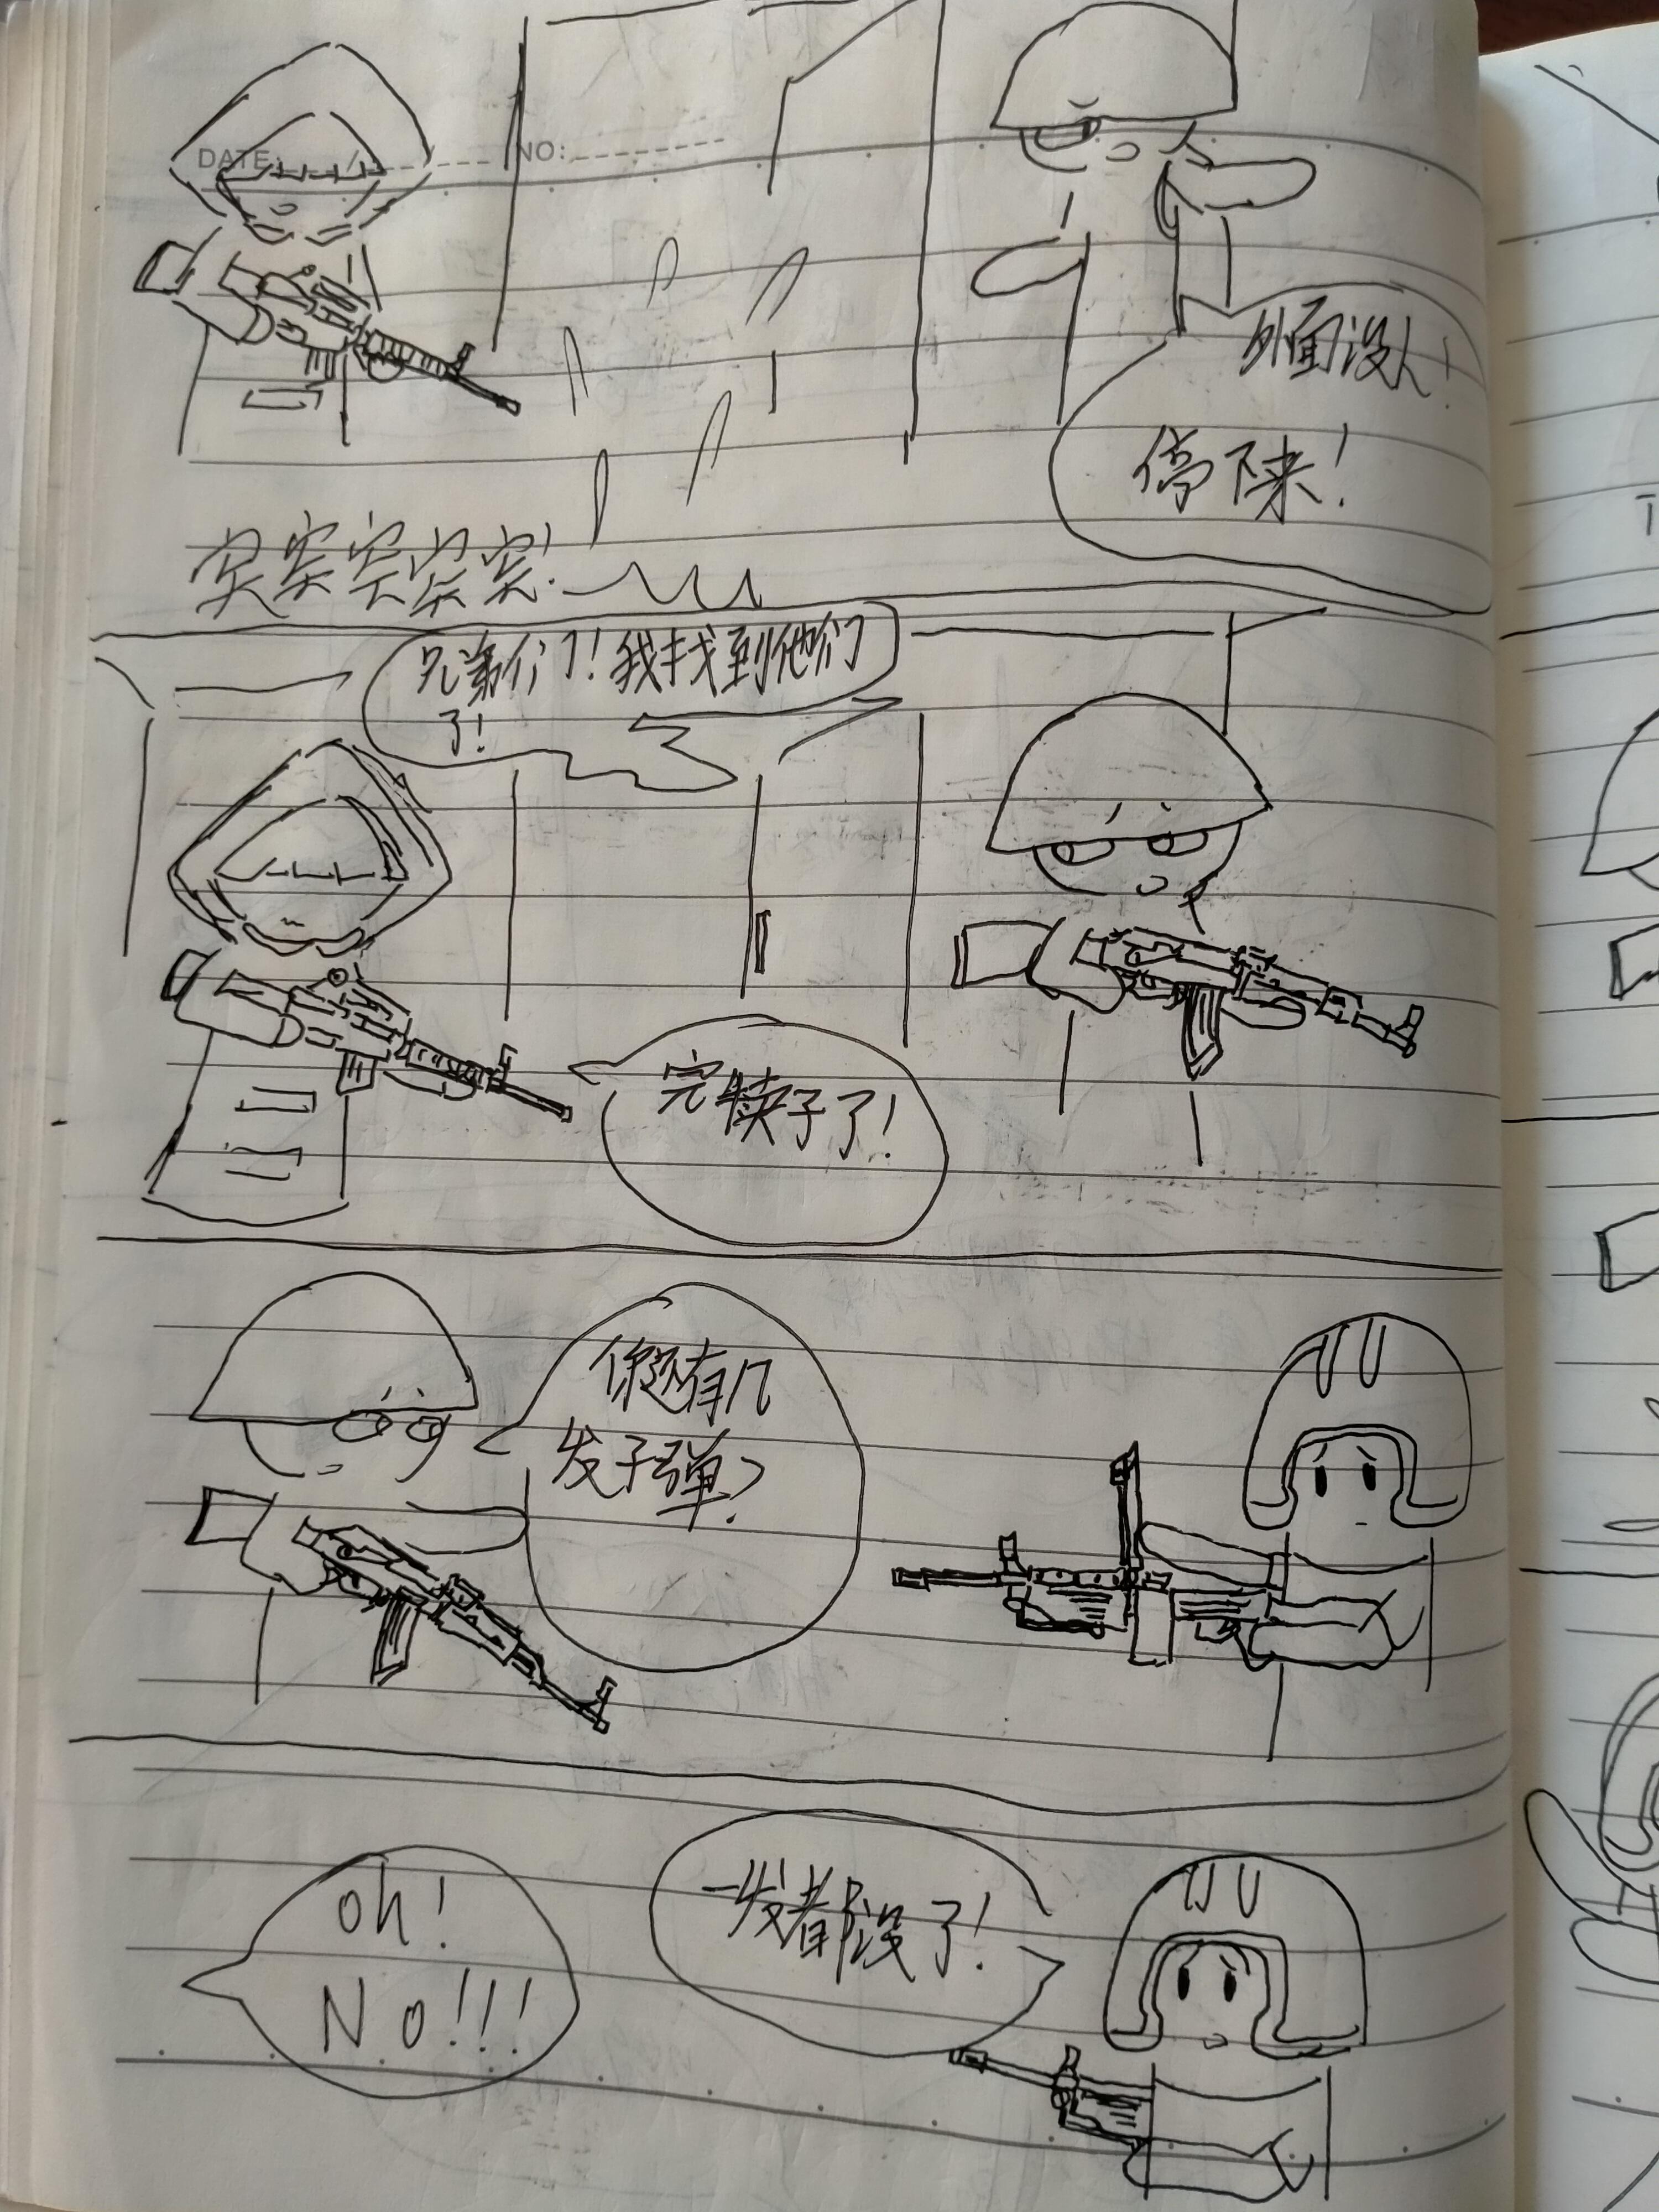 DATE: / / NO:
外面没人!
停下来!
突突突突突!
兄弟们!我找到他们
了!
完犊子了!
你还有几
发子弹?
一发都没了!
oh!
No!!!